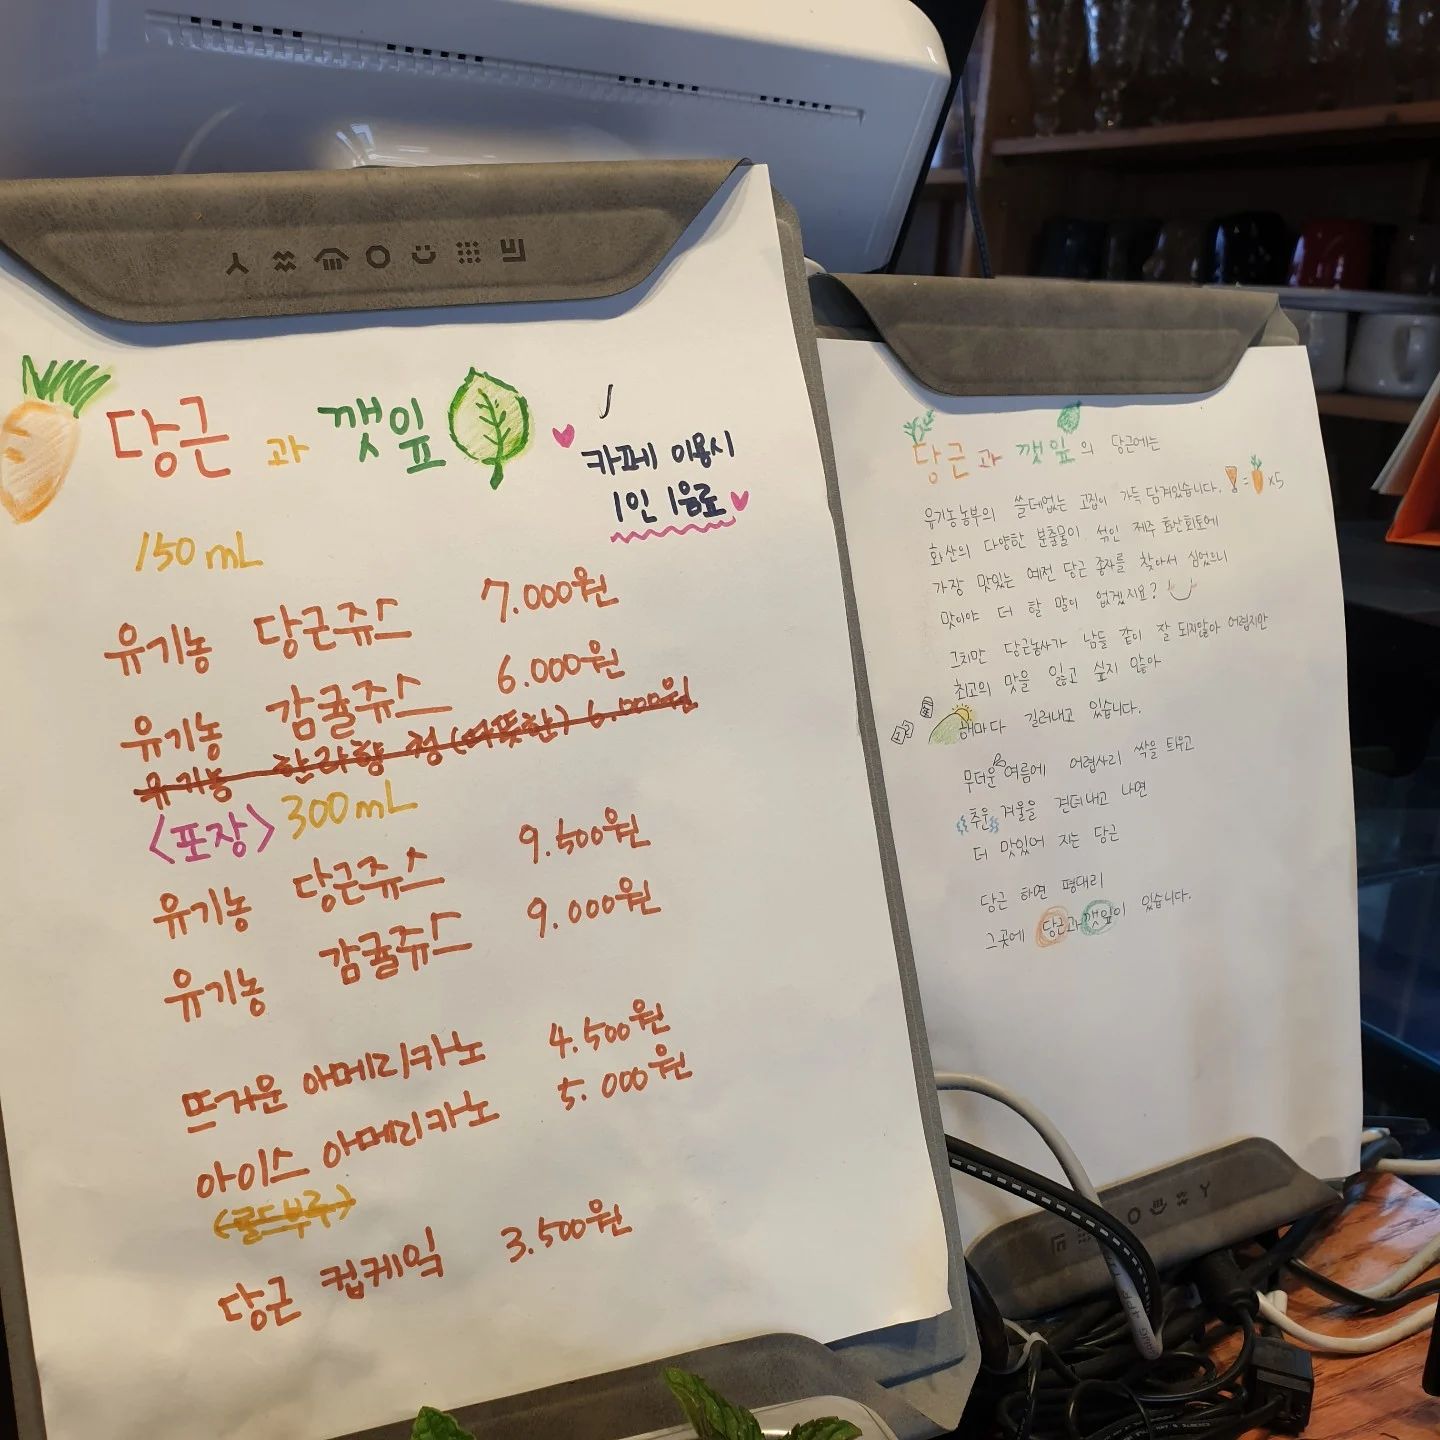 당근 과 깻잎
카페 이용시
1인 1음료
150mL
유기농 당근쥬스 7.000원
유기농 감귤쥬스 6.000원
유기농 한라향 청 (따뜻한) 6.000원
<포장> 300mL
유기농 당근쥬스 9.500원
유기농 감귤쥬스 9.000원
뜨거운 아메리카노 4.500원
아이스 아메리카노 5.000원
<콜드부루>
당근 컵케익 3.500원
당근과 깻잎의 당근에는
유기농농부의 쓸데없는 고집이 가득 담겨있습니다. = x5
화산의 다양한 분출물이 섞인 제주 화산회토에
가장 맛있는 예전 당근 종자를 찾아서 심었으니
맛이야 더 할 말이 없겠지요?
그치만 당근농사가 남들 같이 잘 되지않아 어렵지만
최고의 맛을 잃고 싶지 않아
해마다 길러내고 있습니다.
무더운 여름에 어렵사리 싹을 틔우고
추운 겨울을 견뎌내고 나면
더 맛있어 지는 당근
당근 하면 평대리
그곳에 당근과깻잎이 있습니다.